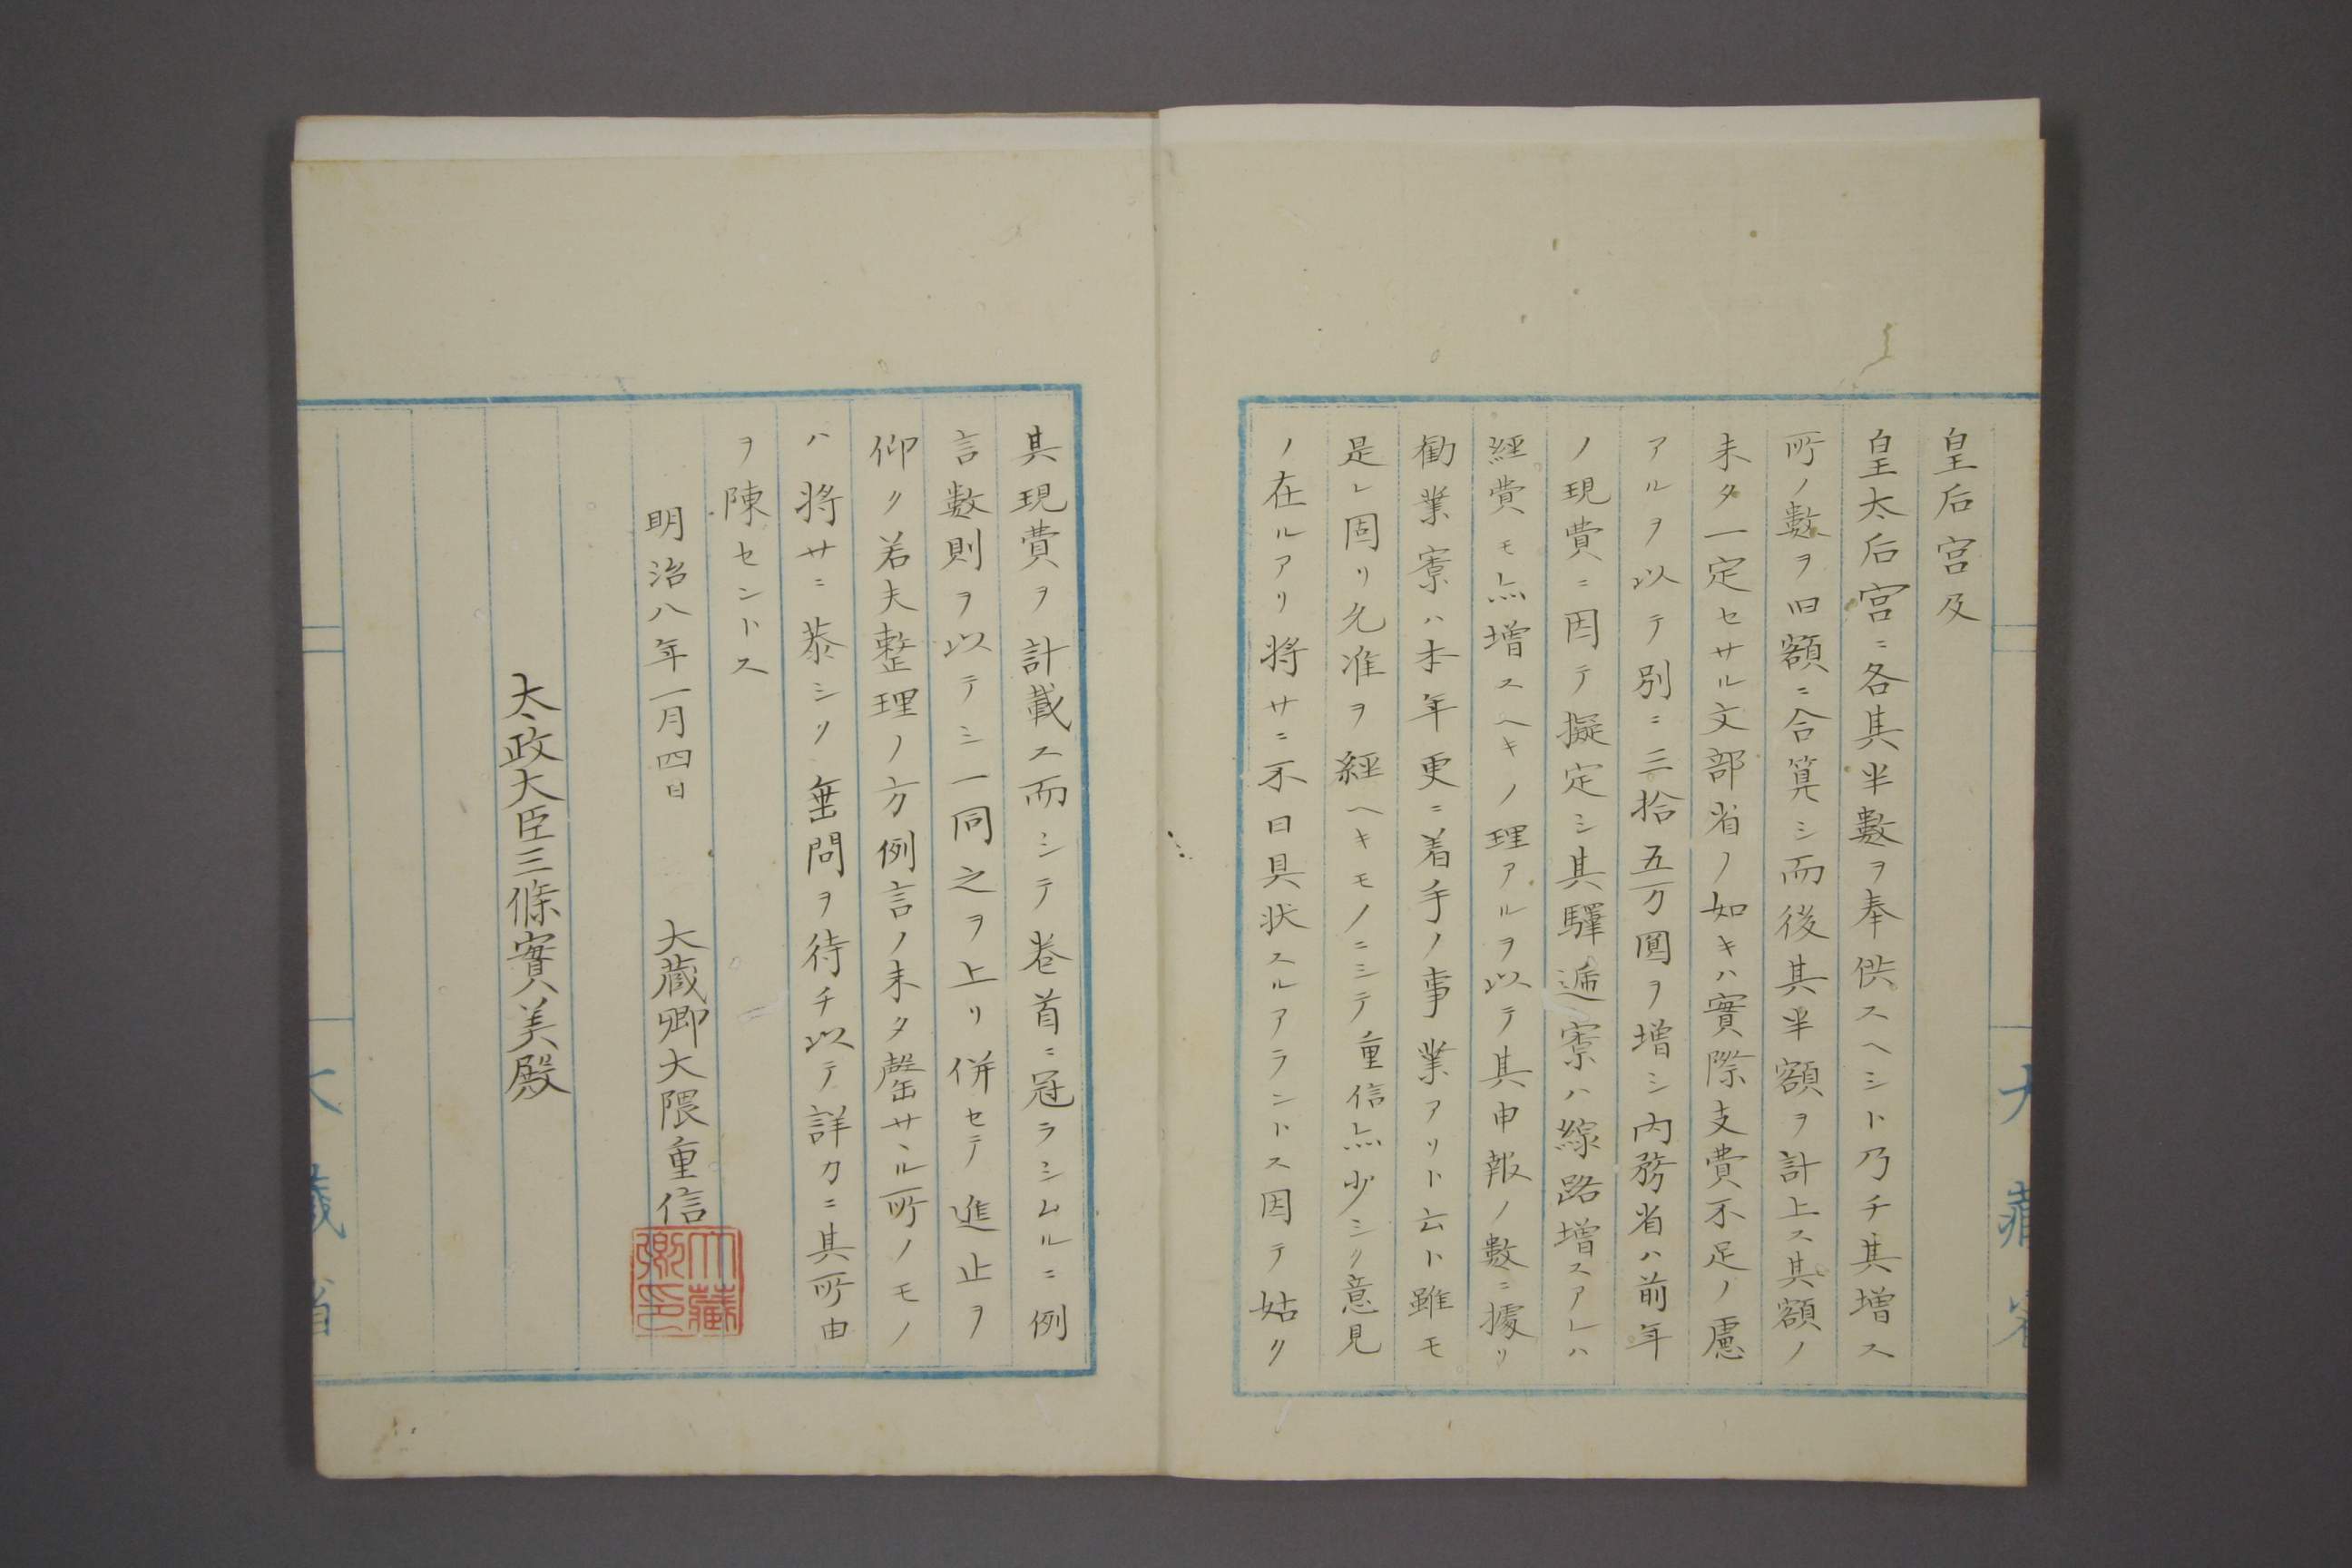 皇后宮及
皇太后宮ニ各其半數ヲ奉供スヘシト乃チ其増ス
所ノ數ヲ旧額ニ合算シ而後其半額ヲ計上ス其額ノ
未タ一定セサル文部省ノ如キハ實際支費不足ノ慮
アルヲ以テ別ニ三拾五万圓ヲ増シ内務省ハ前年
ノ現費ニ因テ擬定シ其驛逓寮ハ線路増スアレハ
經費モ亦増スヘキノ理アルヲ以テ其申報ノ數ニ據リ
勧業寮ハ本年更ニ着手ノ事業アリト云ト雖モ
是レ固リ允准ヲ經ヘキモノニシテ重信亦少シク意見
ノ在ルアリ将サニ不日具状スルアラントス因テ姑ク
其現費ヲ計載ス而シテ巻首ニ冠ラシムルニ例
言數則ヲ以テシ一同之ヲ上リ併セテ進止ヲ
仰ク若夫整理ノ方例言ノ未タ罄サヽル所ノモノ
ハ将サニ恭シク垂問ヲ待チ以テ詳カニ其所由
ヲ陳セントス
明治八年一月四日
大蔵卿大隈重信
大藏卿印
太政大臣三條實美殿
大藏省
大藏省